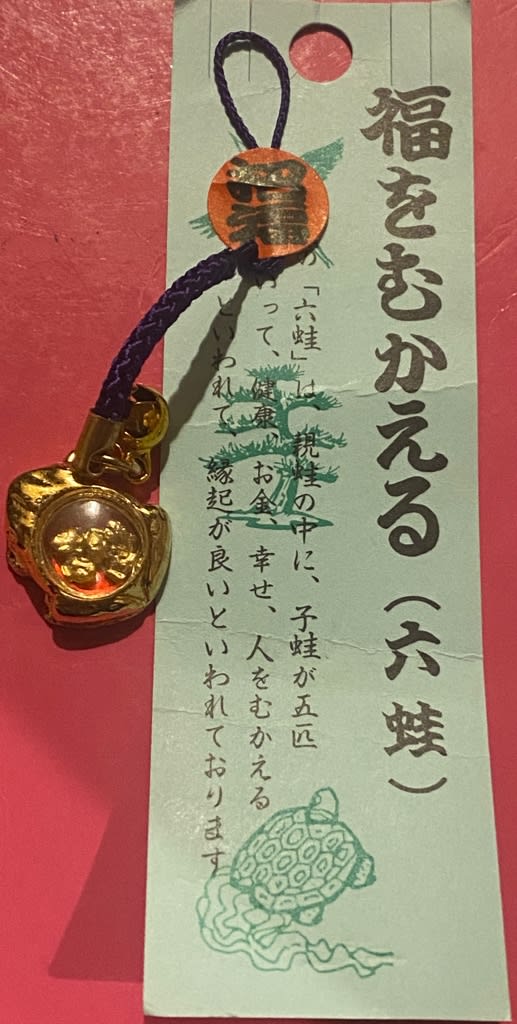 福をむかえる（六蛙）
の「六蛙」は、親蛙の中に、子蛙が五匹
って、健康、お金、幸せ、人をむかえる
といわれて、縁起が良いといわれております